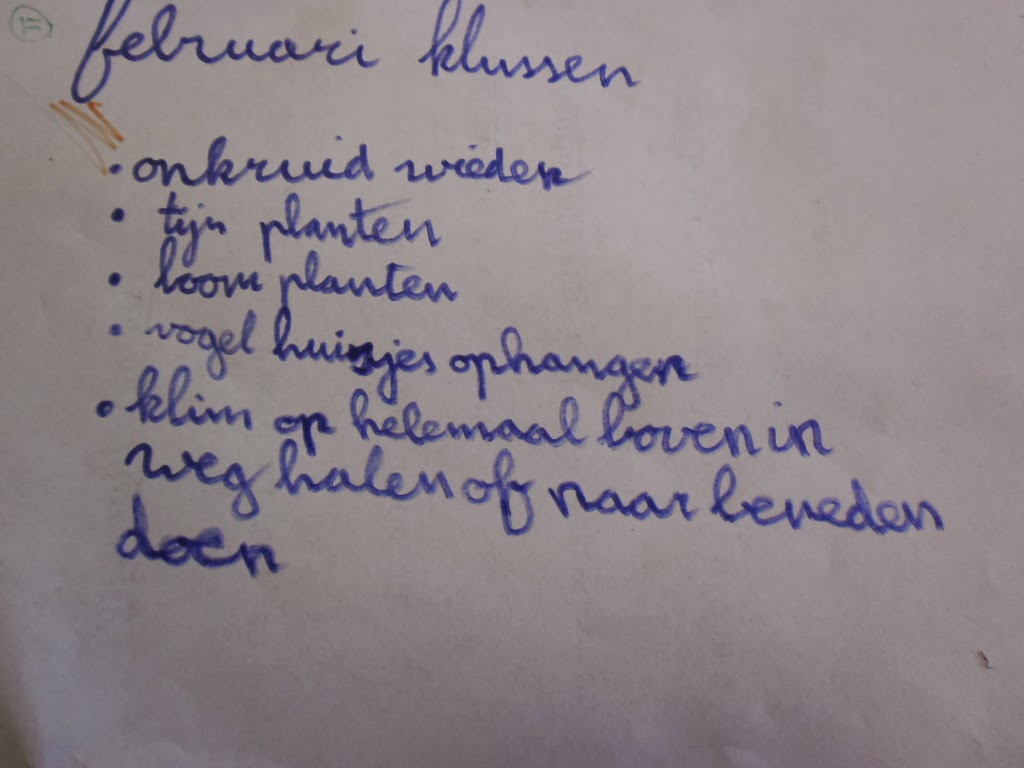 februari klussen
• onkruid wieden
• tijn planten
• boom planten
• vogel huisjes ophangen
• klim op helemaal boven in
weg halen of naar beneden
doen